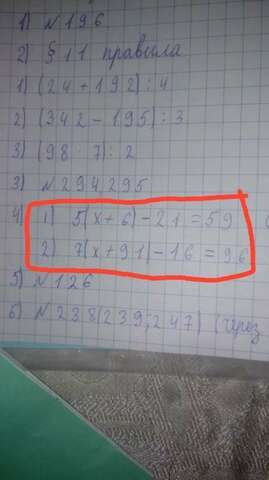 1) N 196
2) § 11 правила
1) (24 + 192) : 4
2) (342 - 195) : 3
3) (98 · 7) : 2
3) N 294, 295
4) 1) 5(x + 6) - 21 = 59 (
2) 7(x + 91) - 16 = 96
5) N 126
6) N 238(239; 247) (через